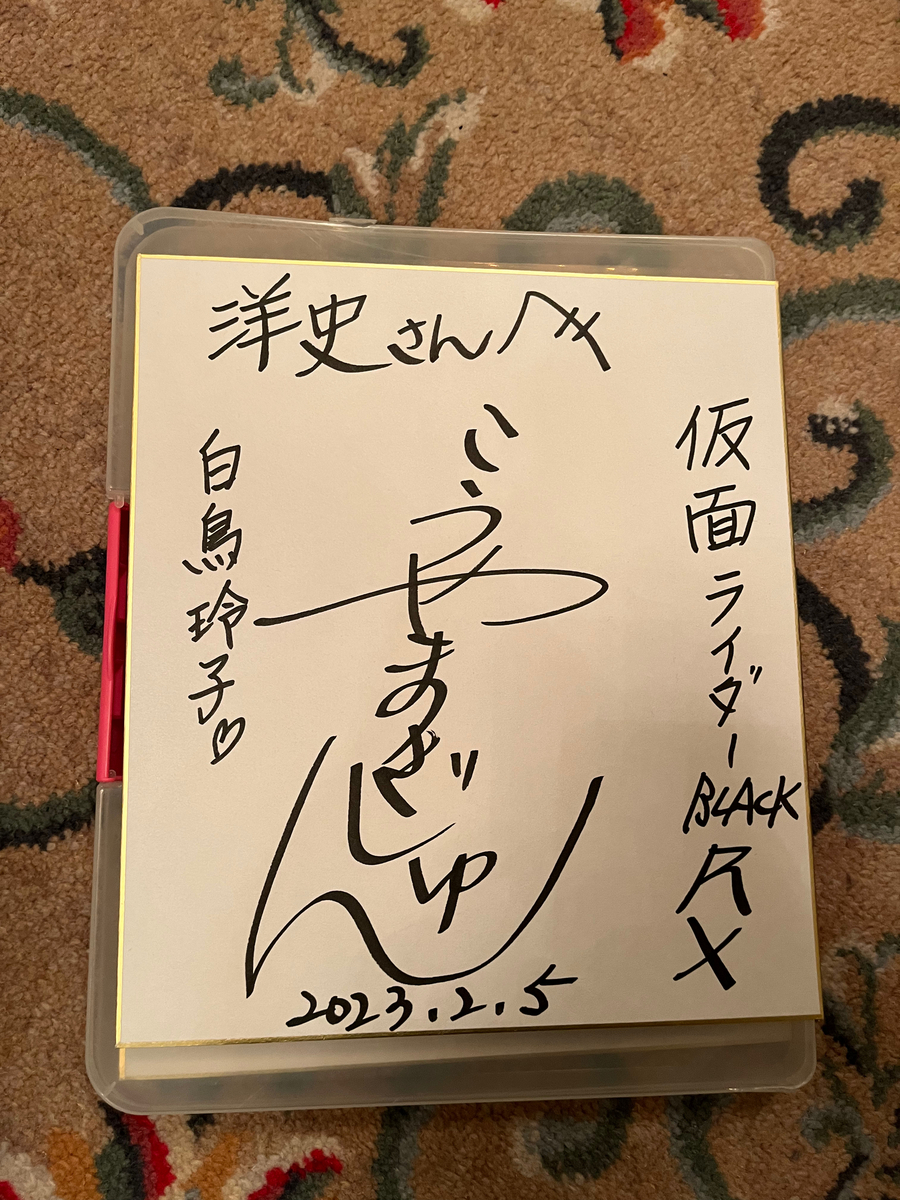 洋史さんへ
仮面ライダーBLACK RX
こうやまきじゅん
白鳥玲子♡
2023.2.5